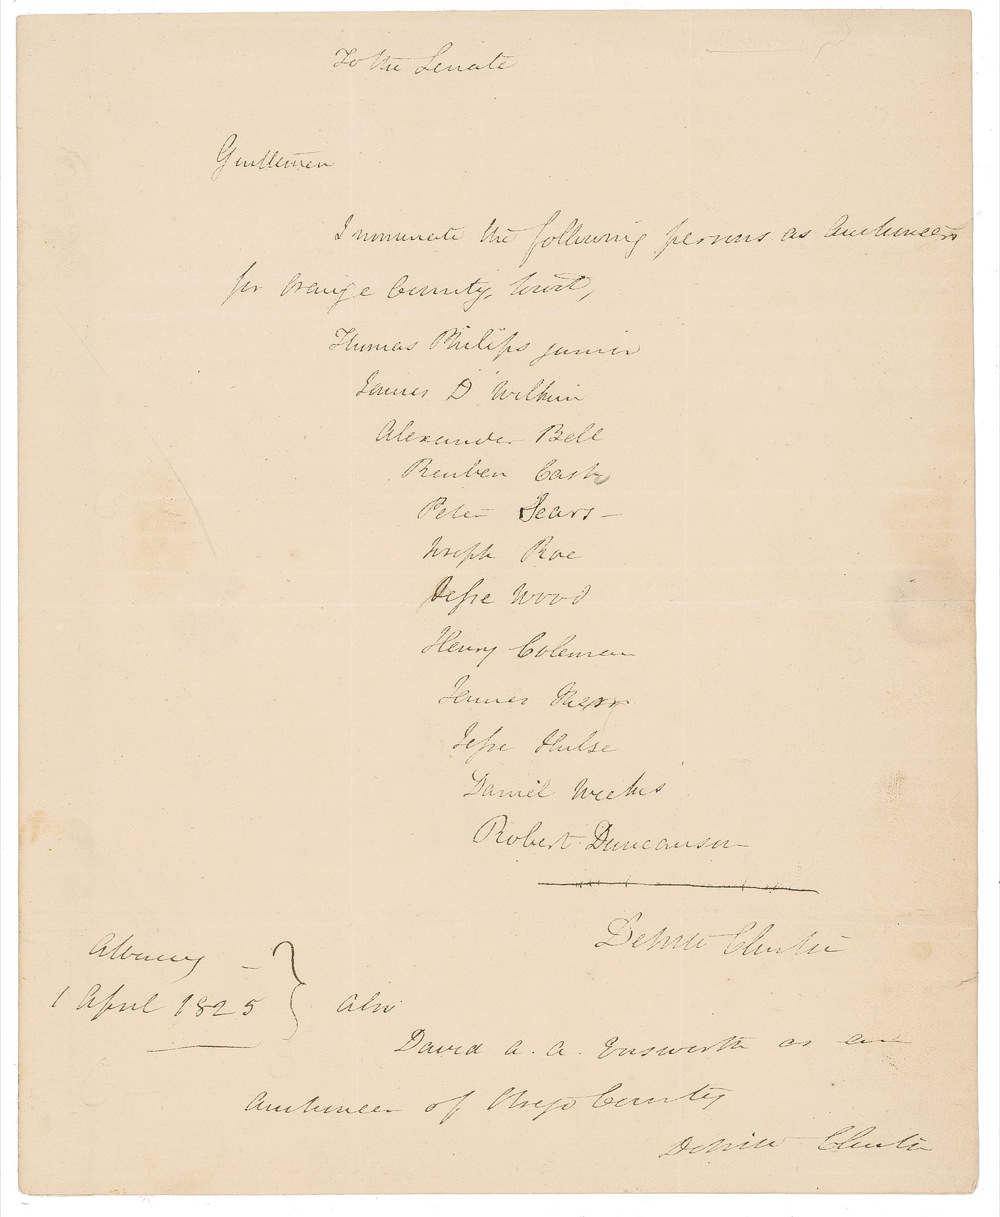 To the Senate
Gentlemen
I nominate the following persons as Auctioneers
for Orange County, to wit,
Thomas Philips junior
James D Wilkin
Alexander Bell
Reuben Cash
Peter Sears
Joseph Roe
Jesse Wood
Henry Coleman
James
Jesse Hulse
Daniel Weeks
Robert Duncanson
DeWitt Clinton
Albany
1 April 1825
also
David A. A. Ensworth as an
Auctioneer of County
DeWitt Clinton